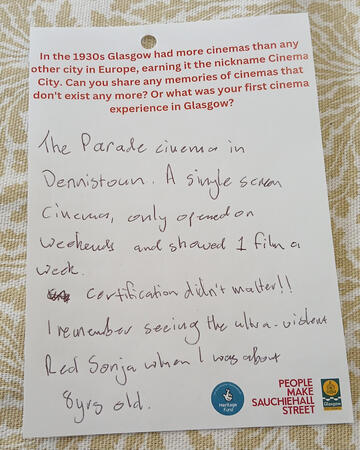 In the 1930s Glasgow had more cinemas than any
other city in Europe, earning it the nickname Cinema
City. Can you share any memories of cinemas that
don't exist any more? Or what was your first cinema
experience in Glasgow?
The Parade cinema in
Dennistoun. A single screen
cinema, only opened on
weekends and showed 1 film a
week.
certification didn't matter!!
I remember seeing the ultra-violent
Red Sonja when I was about
8yrs old.
Heritage
Fund
PEOPLE
MAKE
SAUCHIEHALL
STREET
Glasgow